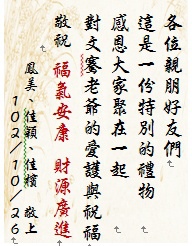 各位親朋好友們
這是一份特別的禮物
感恩大家聚在一起
對文騫老爺的愛護與祝福
敬祝 福氣安康 財源廣進
鳳美、佳穎、佳檳 敬上
102/10/26